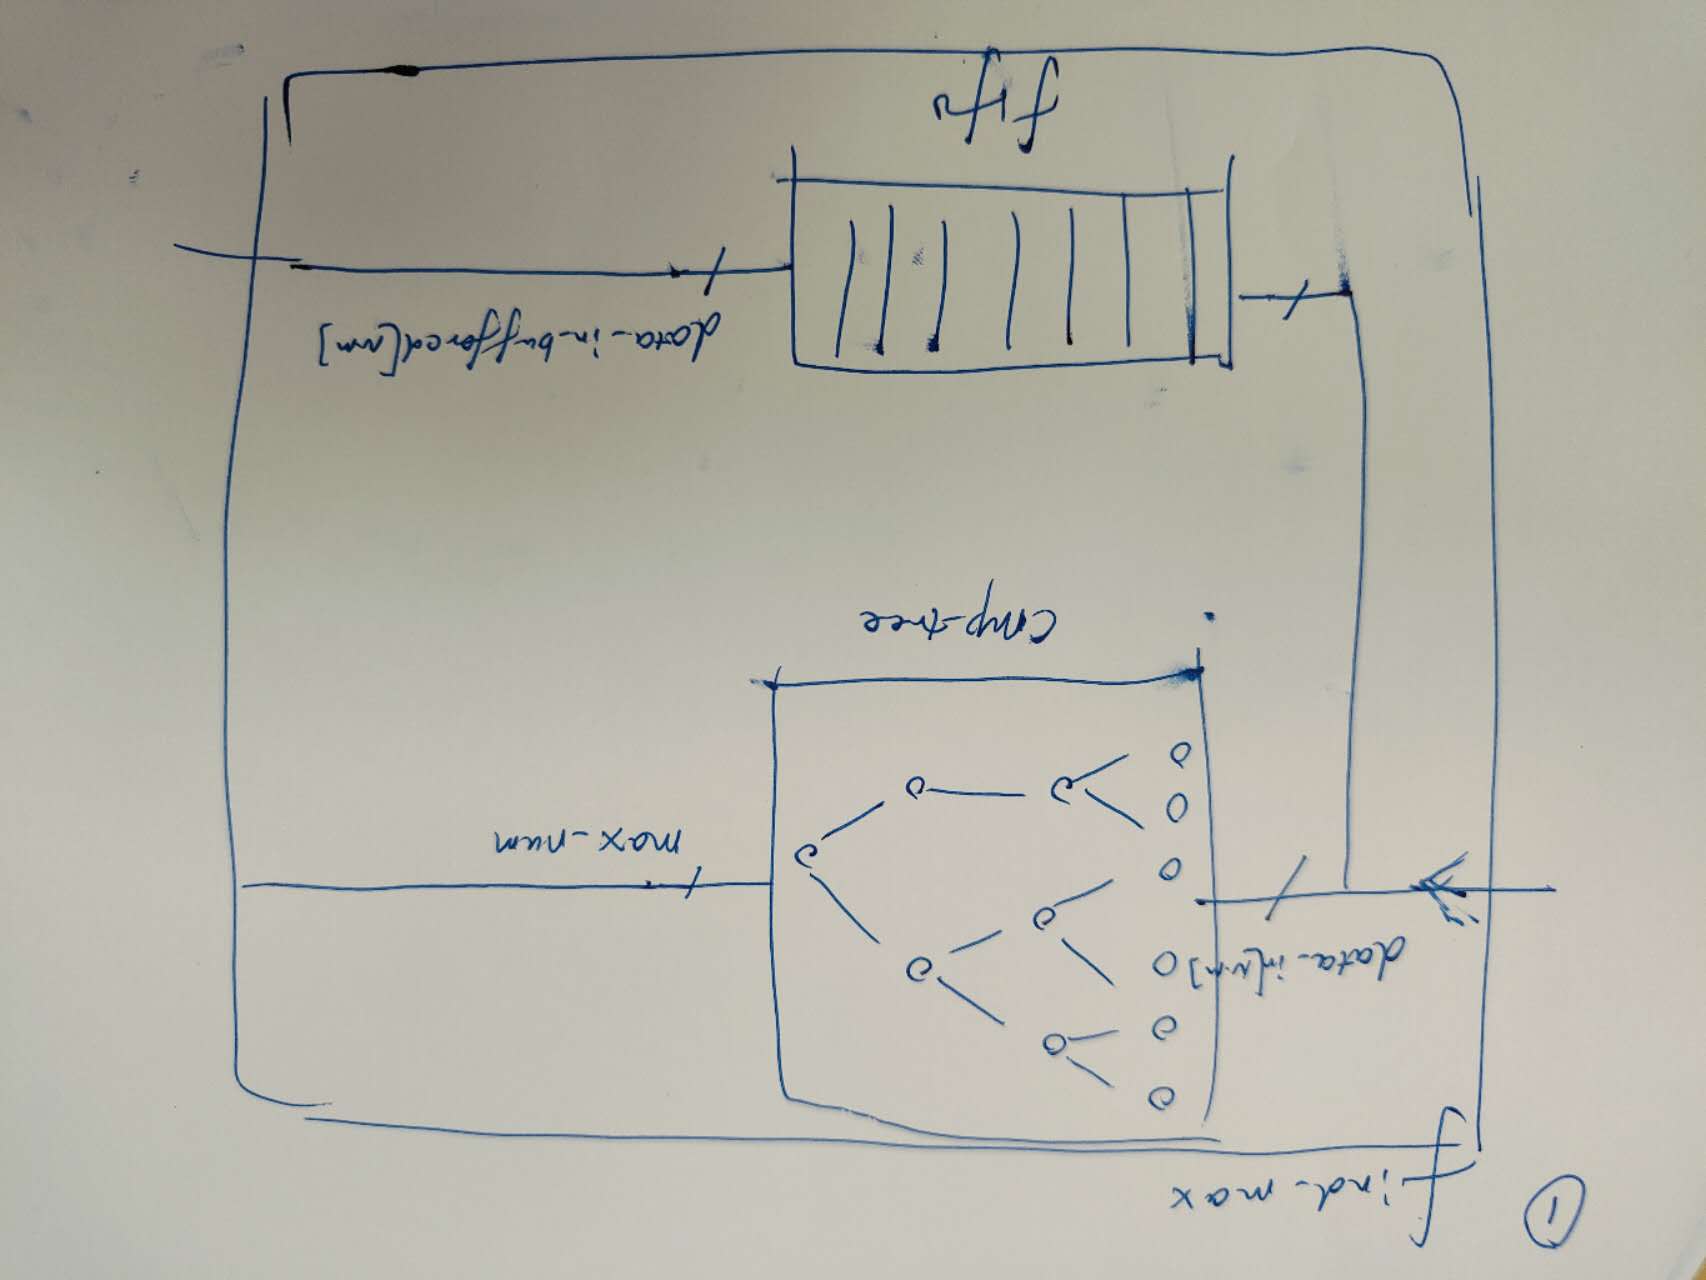 ① find_max
data_in[num]
max_num
cmp_tree
data_in_buffered[num]
fifo